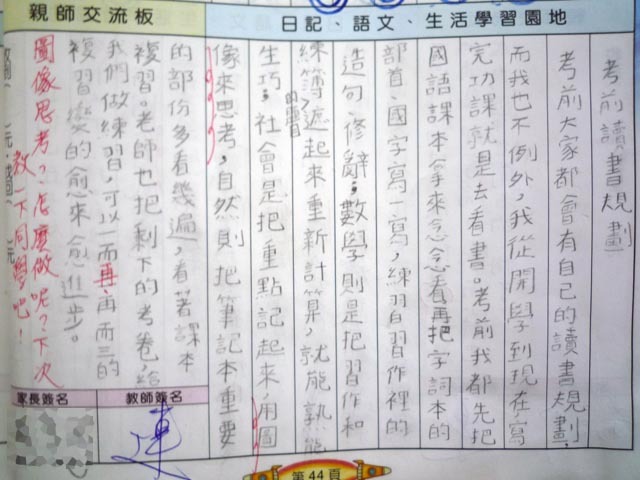 親師交流板
日記、語文、生活學習園地
考前讀書規劃
考前大家都會有自己的讀書規劃,
而我也不例外,我從開學到現在寫
完功課就是去看書。考前我都先把
國語課本拿來念念看再把字詞本的
部首、國字寫一寫,練習習作裡的
造句、修辭;數學則是把習作和
練簿的題目遮起來重新計算,就能熟能
生巧;社會是把重點記起來,用圖
像來思考,自然則把筆記本重要
的部份多看幾遍,看著課本
複習。老師也把剩下的考卷,給
我們做練習,可以一而再、再而三的
複習變的愈來愈進步。
圖像思考?怎麼做呢?下次
教一下同學吧!
家長簽名
教師簽名
連
第44頁